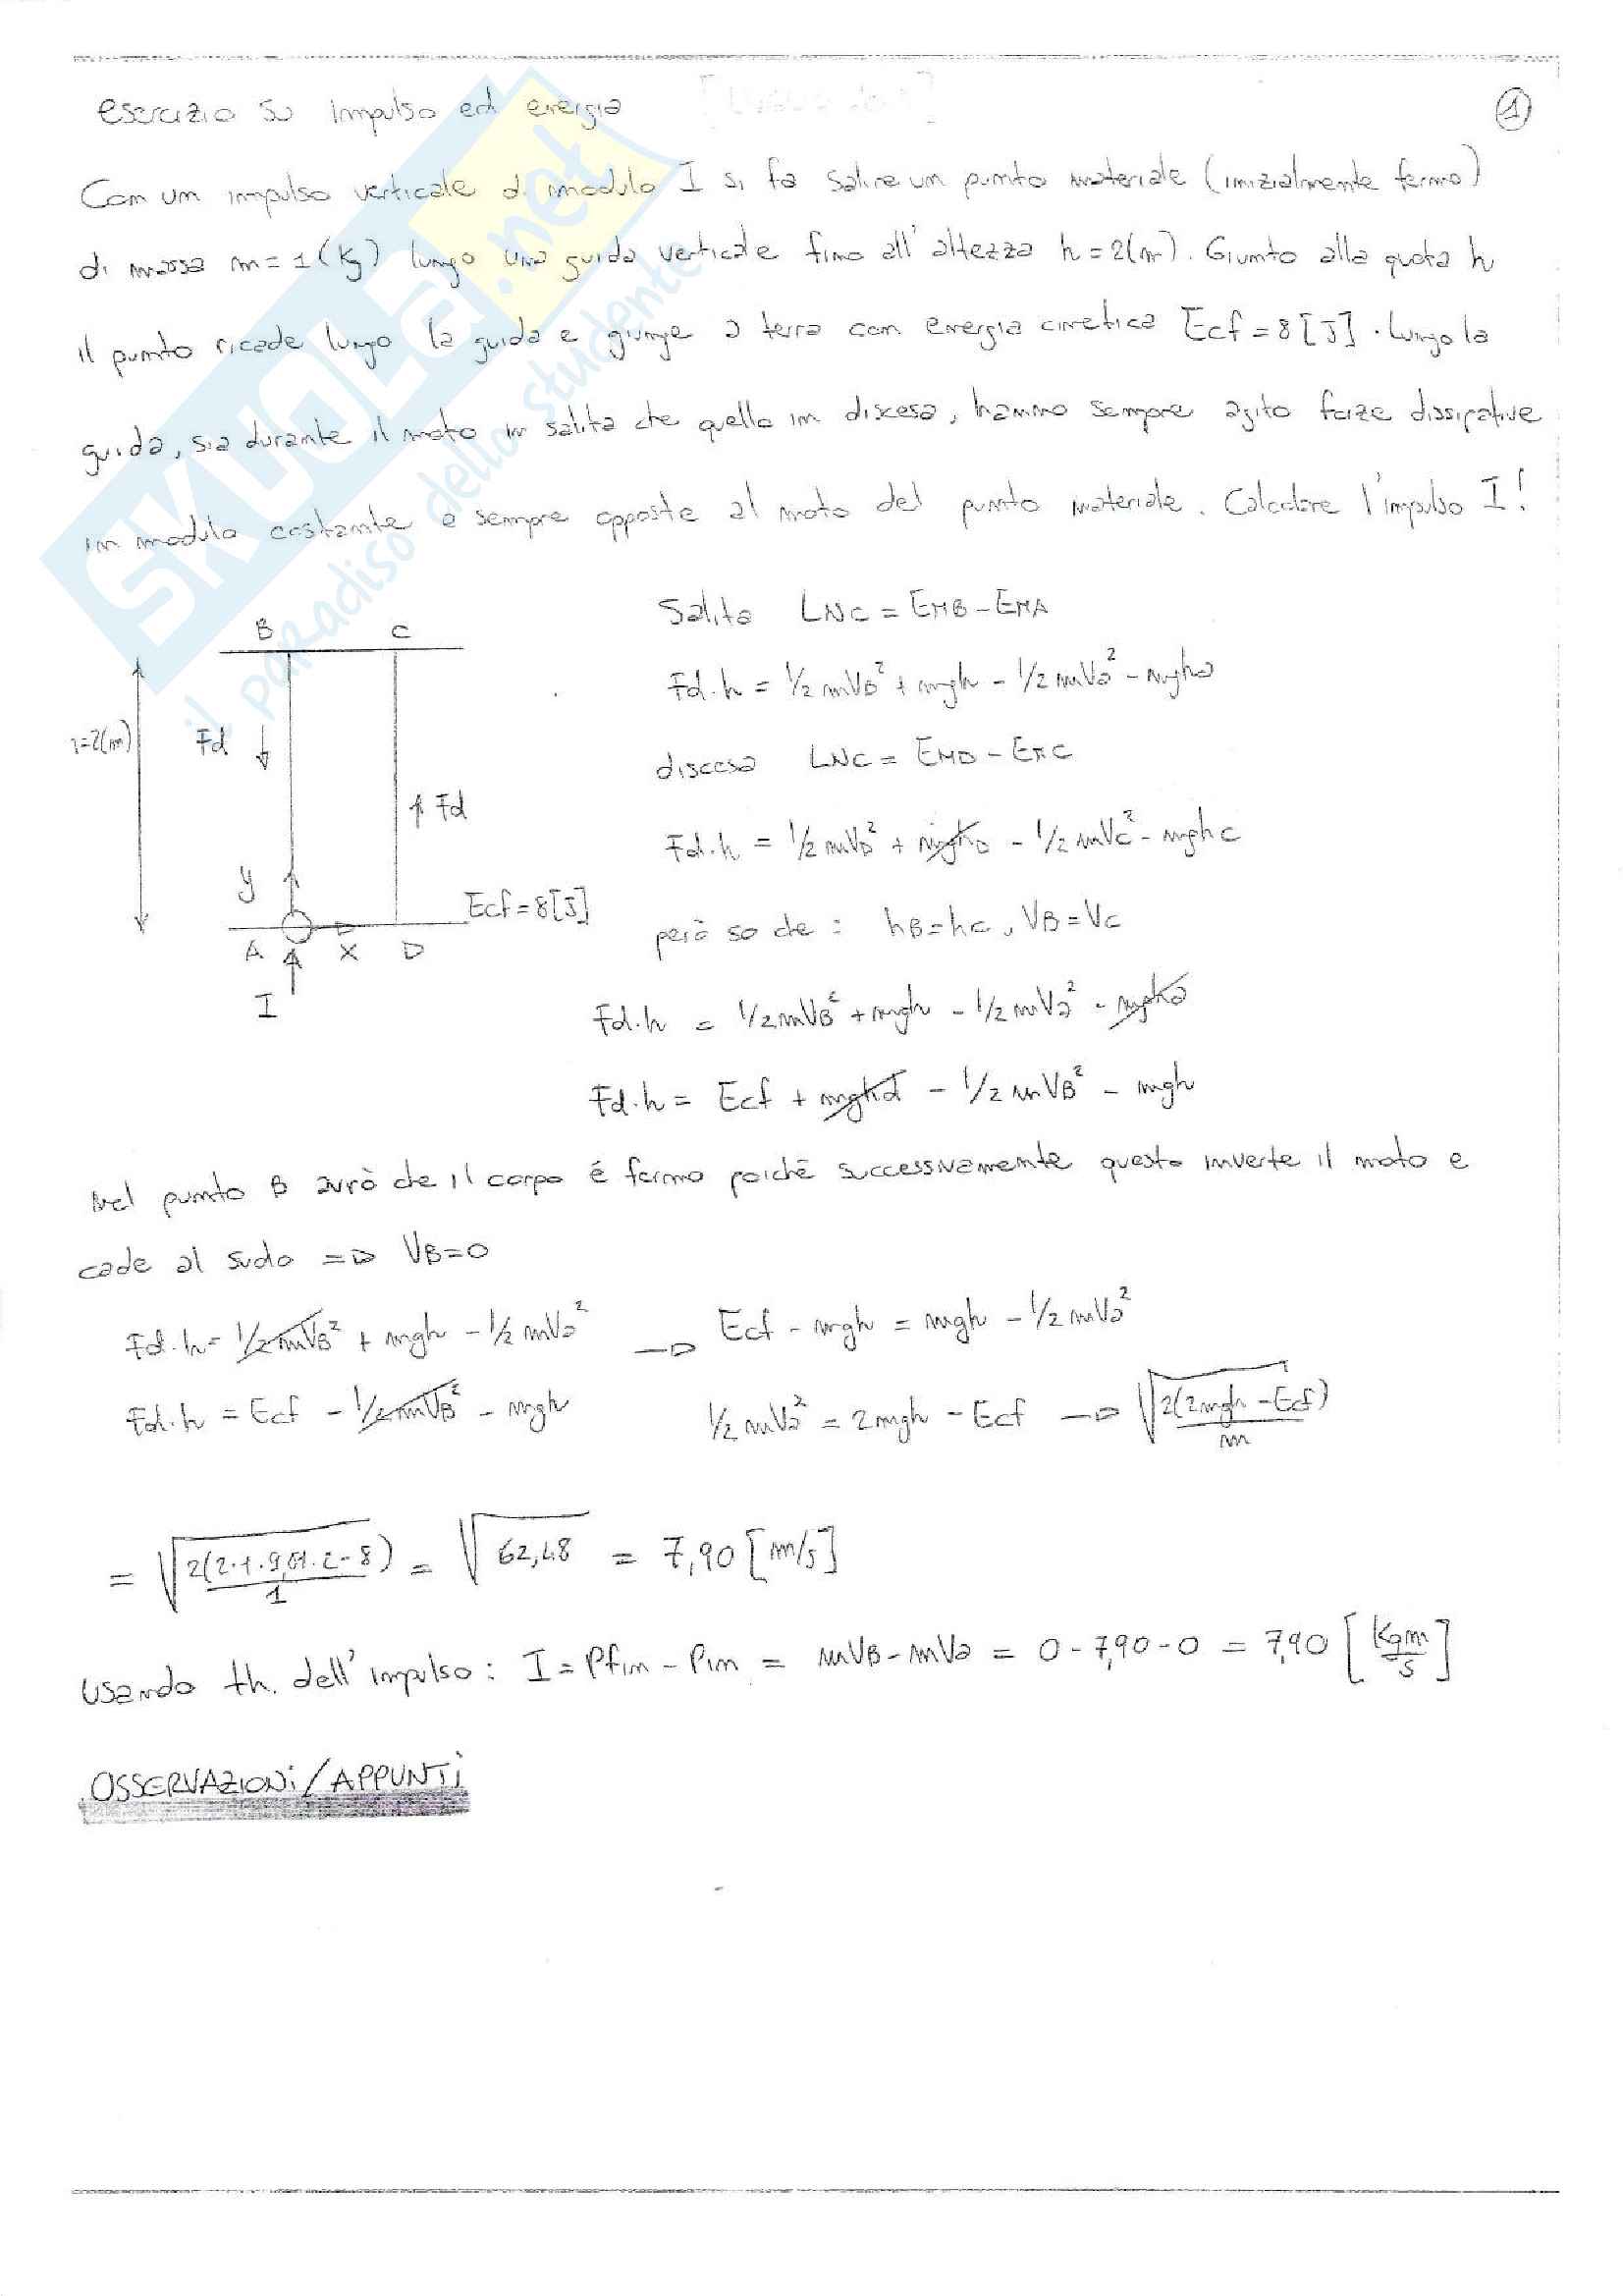 esercizio su impulso ed energia
1
Con un impulso verticale di modulo I si fa salire un punto materiale (inizialmente fermo)
di massa m = 1 (Kg) lungo una guida verticale fino all'altezza h = 2(m). Giunto alla quota h
il punto ricade lungo la guida e giunge a terra con energia cinetica Ecf = 8 [J]. Lungo la
guida, sia durante il moto in salita che quello in discesa, hanno sempre agito forze dissipative
in modulo costante e sempre opposte al moto del punto materiale. Calcolare l'impulso I!
SKUOLA.net
il paradiso dello studente
Salita LNC = EMB - EMA
Fd·h = 1/2 mVB² + mgh - 1/2 mVa² - mgha
discesa LNC = EMD - EMC
Fd·h = 1/2 mVD² + mghD - 1/2 mVC² - mghC
però so che : hB = hC, VB = VC
Fd·h = 1/2 mVB² + mgh - 1/2 mVa² - mgha
Fd·h = Ecf + mghd - 1/2 mVB² - mgh
B C
h=2(m)
Fd
Fd
y
Ecf = 8[J]
A X D
I
Nel punto B avrò che il corpo é fermo poiché successivamente questo inverte il moto e
cade al suolo => VB=0
Fd·h = 1/2 mVB² + mgh - 1/2 mVa² -> Ecf - mgh = mgh - 1/2 mVa²
Fd·h = Ecf - 1/2 mVB² - mgh 1/2 mVa² = 2mgh - Ecf -> √2(2mgh - Ecf)/m
= √2(2·1·9,81·2-8)/1 = √62,48 = 7,90 [m/s]
Usando th. dell'impulso: I = Pfin - Pin = mVB - mVa = 0 - 7,90 - 0 = 7,90 [Kgm/s]
OSSERVAZIONi/APPUNTi